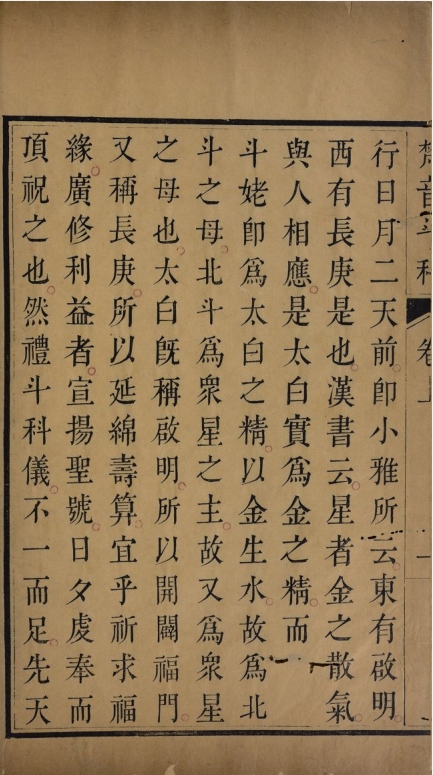 梵音斗科 卷上 一
行日月二天前卽小雅所云東有啟明
西有長庚是也漢書云星者金之散氣
與人相應是太白實爲金之精而
斗姥卽爲太白之精以金生水故爲北
斗之母北斗爲衆星之主故又爲衆星
之母也太白旣稱啟明所以開闢福門
又稱長庚所以延綿壽算宜乎祈求福
緣廣修利益者宣揚聖號日夕虔奉而
頂祝之也然禮斗科儀不一而足先天